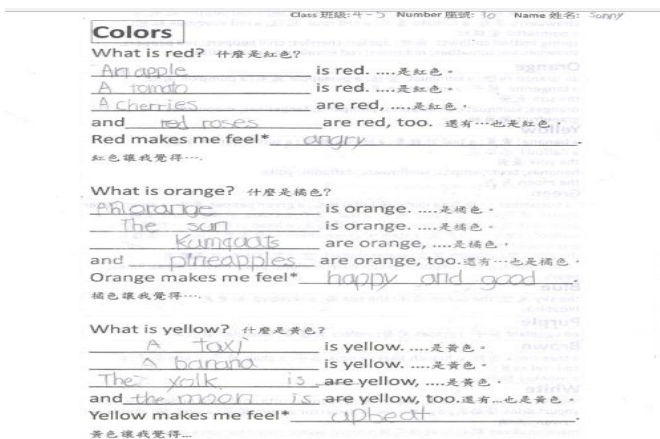 Class 班級: 4-5 Number 座號: 30 Name 姓名: Sunny
Colors
What is red? 什麼是紅色?
An apple is red. ....是紅色。
A tomato is red. ....是紅色。
A cherries are red, ....是紅色。
and red roses are red, too. 還有…也是紅色。
Red makes me feel* angry.
紅色讓我覺得….
What is orange? 什麼是橘色?
An orange is orange. ....是橘色。
The sun is orange. ....是橘色。
Kumquats are orange, ....是橘色。
and pineapples are orange, too.還有…也是橘色。
Orange makes me feel* happy and good.
橘色讓我覺得….
What is yellow? 什麼是黃色?
A taxi is yellow. ....是黃色。
A banana is yellow. ....是黃色。
The yolk is are yellow, ....是黃色。
and the moon is are yellow, too.還有…也是黃色。
Yellow makes me feel* upbeat.
黃色讓我覺得…